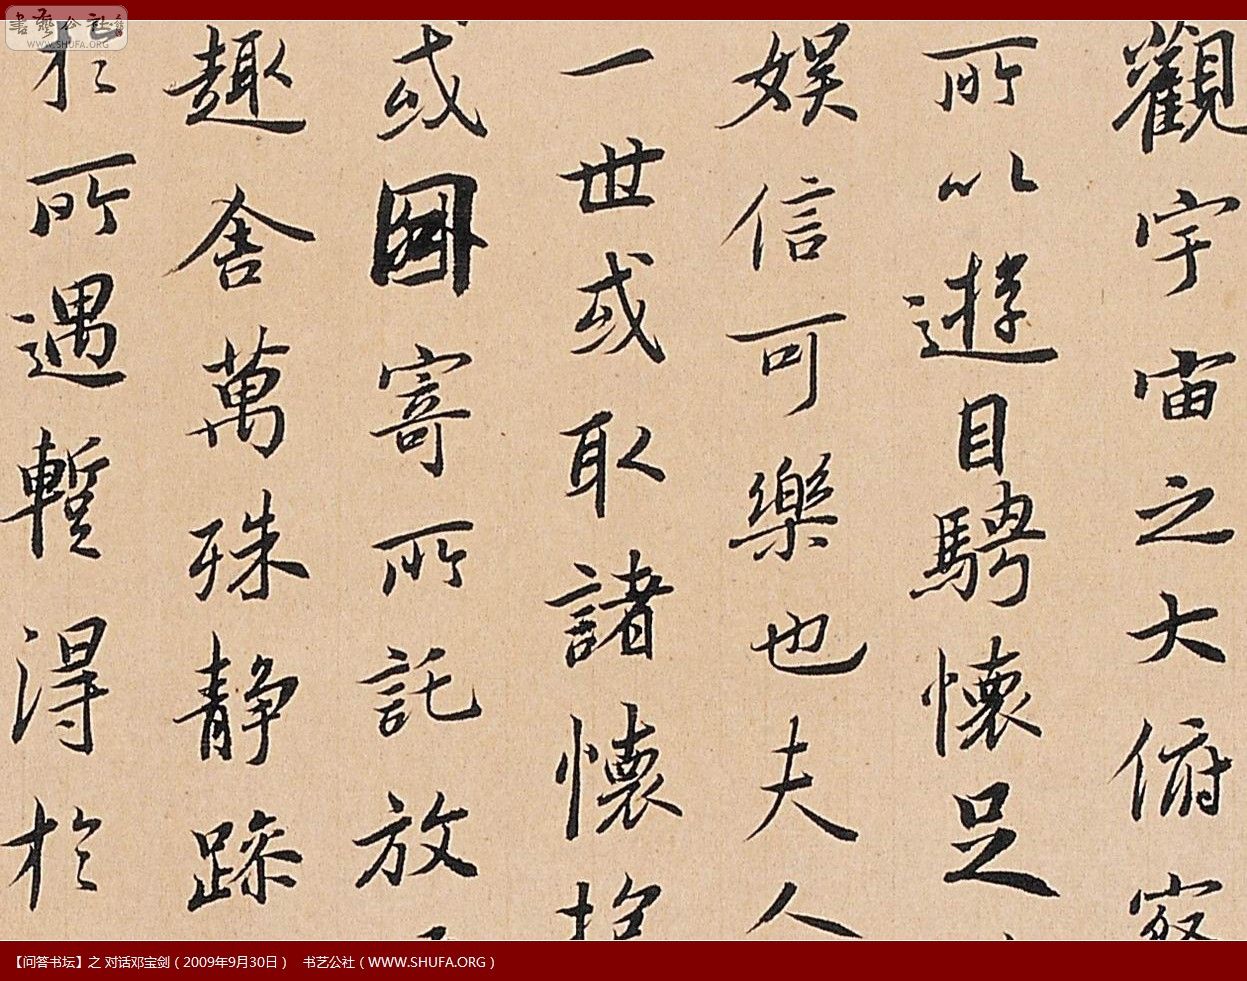 书艺公社
WWW.SHUFA.ORG
觀宇宙之大俯察
所以遊目騁懷足
娱信可樂也夫人
一世或取諸懷抱
或因寄所託放
趣舍萬殊静躁
於所遇蹔得於
【问答书坛】之 对话邓宝剑（2009年9月30日） 书艺公社（WWW.SHUFA.ORG）